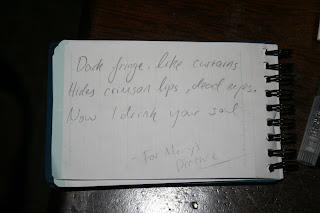 Dark fringe, like curtains
Hides crimson lips, dead eyes.
Now I drink your soul
- For Merry's